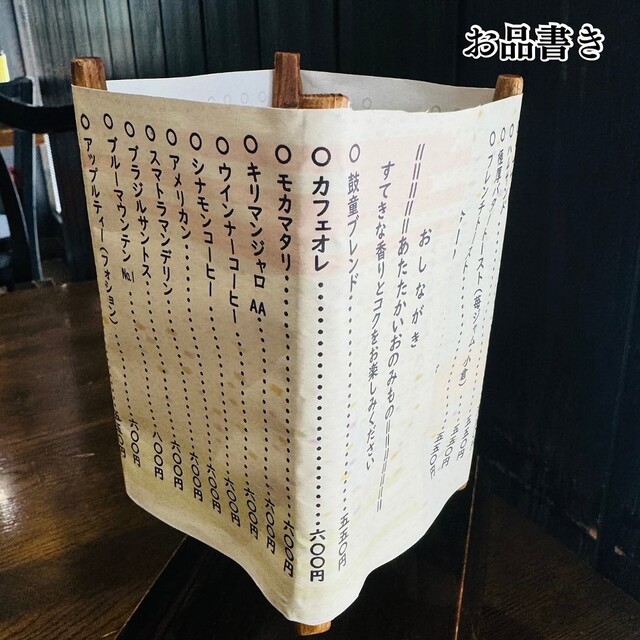 お品書き
おしながき
＝＝＝＝＝あたたかいおのみもの＝＝＝＝＝＝＝＝
すてきな香りとコクをお楽しみください
○ 鼓童ブレンド・・・・・・・・・・・・五五〇円
○ カフェオレ・・・・・・・・・・・・・六〇〇円
○ モカマタリ・・・・・・・・・・・・・六〇〇円
○ キリマンジャロ AA・・・・・・・・・・六〇〇円
○ ウインナーコーヒー・・・・・・・・・六〇〇円
○ シナモンコーヒー・・・・・・・・・・六〇〇円
○ アメリカン・・・・・・・・・・・・・六〇〇円
○ スマトラマンデリン・・・・・・・・・八〇〇円
○ ブラジルサントス・・・・・・・・・・六〇〇円
○ ブルーマウンテン No.1
○ アップルティー（フォション）